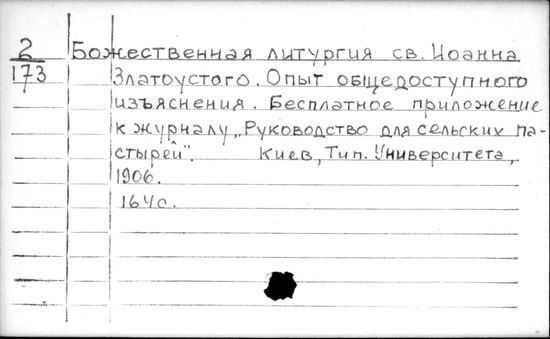 2 Божественная литургия св. Иоанна
173 Златоустого. Опыт общедоступного
изъяснения. Бесплатное приложение
к журналу „Руководство для сельских па-
стырей". Киев, Тип. Университета,
1906.
164с.